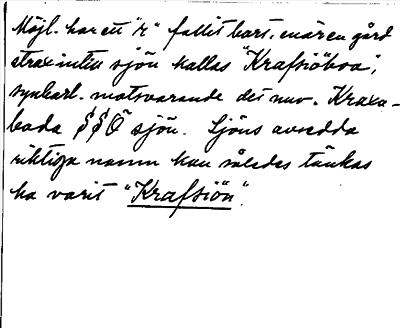 Möjl. har ett "k" fallit bort, enär en gård
strax intill sjön kallas "Krafsiöboa",
synbarl. motsvarande det nuv. Kraxa-
boda §§Ö sjön. Sjöns avsedda
riktiga namn kan således tänkas
ha varit "Krafsiön".